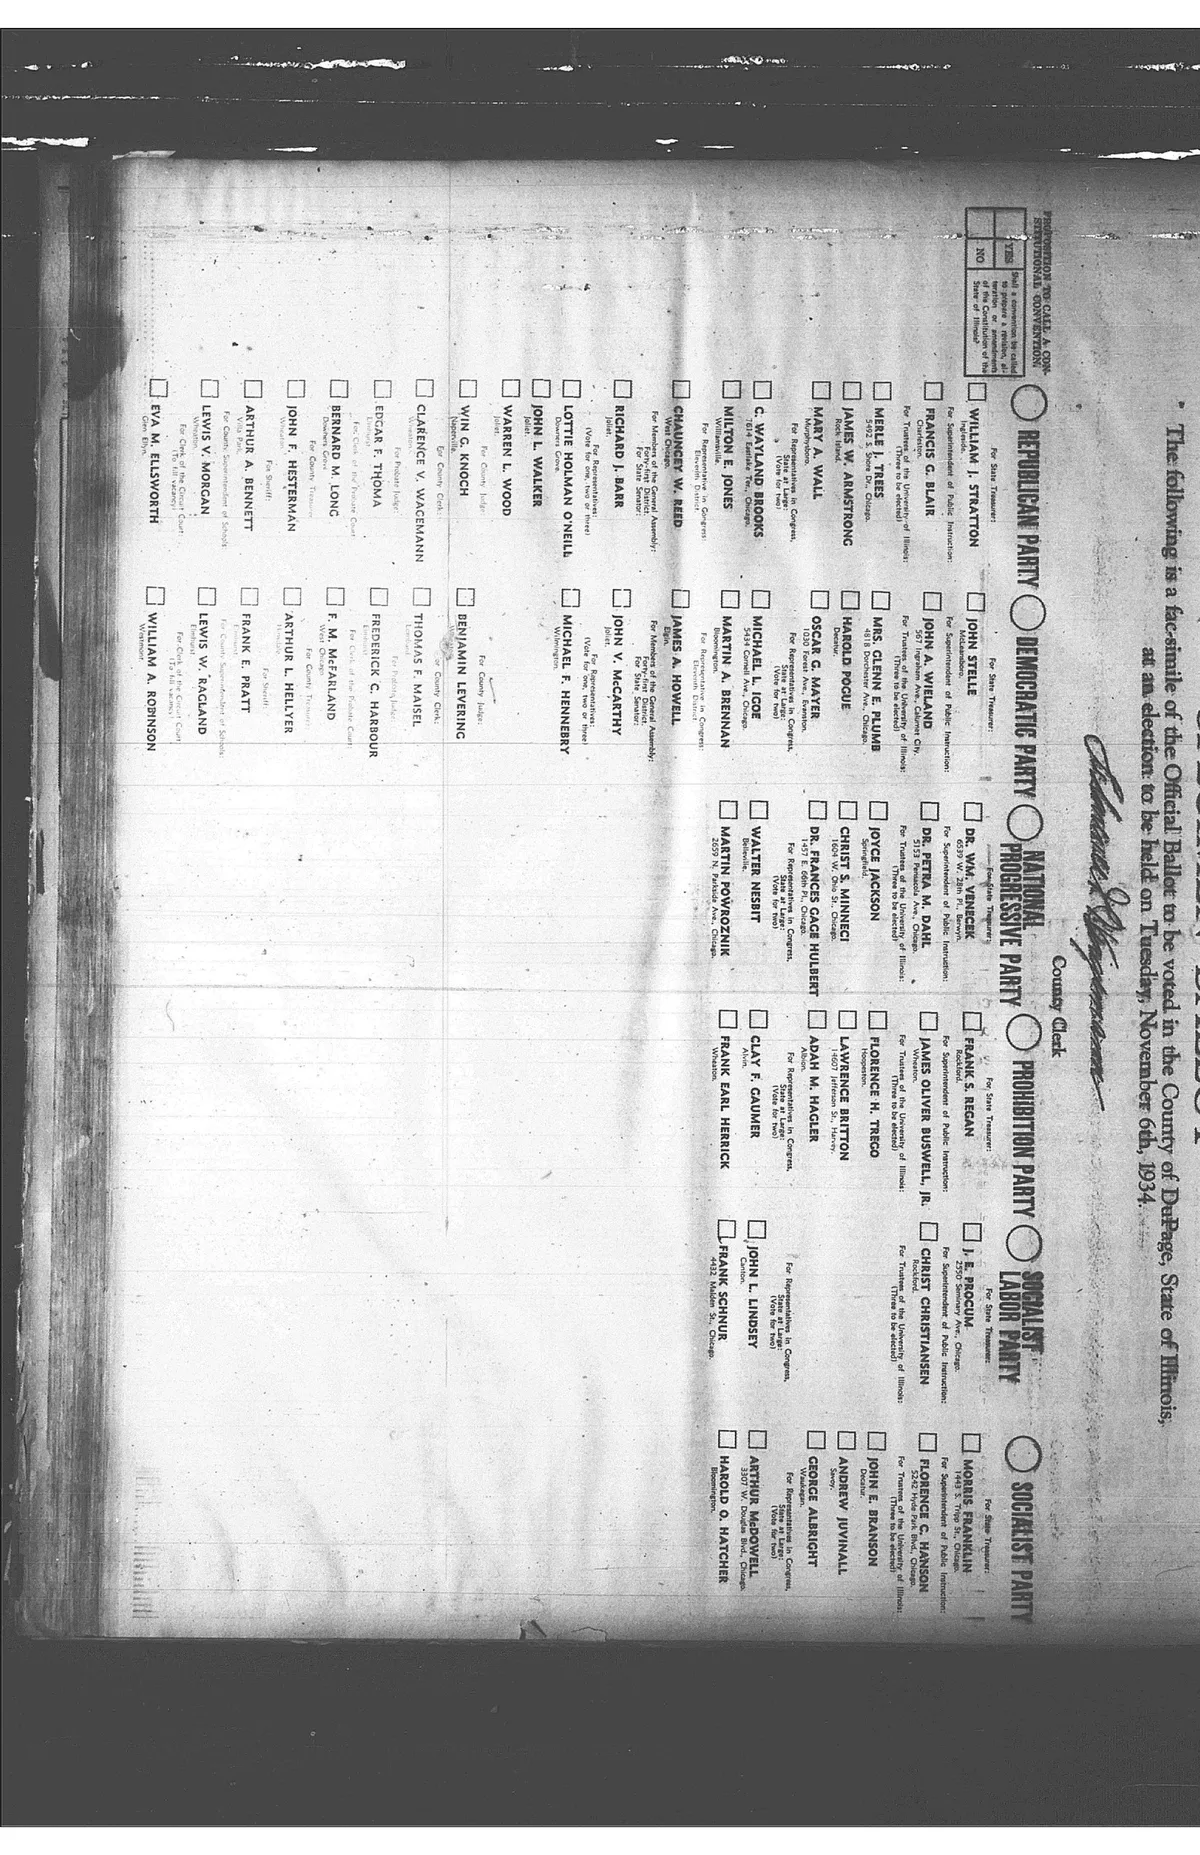 The following is a fac-simile of the Official Ballot to be voted in the County of DuPage, State of Illinois,
at an election to be held on Tuesday, November 6th, 1934.
County Clerk
PROPOSITION TO CALL A CON-
STITUTIONAL CONVENTION
YES
NO
Shall a convention be called
to prepare a revision, al-
teration or amendments
of the Constitution of the
State of Illinois?
REPUBLICAN PARTY
For State Treasurer:
WILLIAM J. STRATTON
Ingleside.
For Superintendent of Public Instruction:
FRANCIS G. BLAIR
Charleston.
For Trustees of the University of Illinois:
(Three to be elected)
MERLE J. TREES
5492 S. Shore Dr., Chicago.
JAMES W. ARMSTRONG
Rock Island.
MARY A. WALL
Murphysboro.
For Representatives in Congress,
State at Large:
(Vote for two)
C. WAYLAND BROOKS
7614 Eastlake Ter., Chicago.
MILTON E. JONES
Williamsville.
For Representative in Congress:
Eleventh District.
CHAUNCEY W. REED
West Chicago.
For Members of the General Assembly:
Forty-first District.
For State Senator:
RICHARD J. BARR
Joliet.
For Representatives:
(Vote for one, two or three)
LOTTIE HOLMAN O'NEILL
Downers Grove.
JOHN L. WALKER
Joliet.
WARREN L. WOOD
Joliet.
For County Judge:
WIN G. KNOCH
Naperville.
For County Clerk:
CLARENCE V. WAGEMANN
Wheaton.
For Probate Judge:
EDGAR F. THOMA
Elmhurst.
For Clerk of the Probate Court:
BERNARD M. LONG
Downers Grove.
For County Treasurer:
JOHN F. HESTERMAN
For Sheriff:
ARTHUR A. BENNETT
Villa Park.
For County Superintendent of Schools
LEWIS V. MORGAN
Wheaton.
For Clerk of the Circuit Court
(To fill vacancy)
EVA M. ELLSWORTH
Glen Ellyn.
DEMOCRATIC PARTY
For State Treasurer:
JOHN STELLE
McLeansboro.
For Superintendent of Public Instruction:
JOHN A. WIELAND
567 Ingraham Ave., Calumet City.
For Trustees of the University of Illinois:
(Three to be elected)
MRS. GLENN E. PLUMB
4815 Dorchester Ave., Chicago.
HAROLD POGUE
Decatur.
OSCAR G. MAYER
1030 Forest Ave., Evanston.
For Representatives in Congress,
State at Large:
(Vote for two)
MICHAEL L. IGOE
5434 Cornell Ave., Chicago.
MARTIN A. BRENNAN
Bloomington.
For Representative in Congress:
Eleventh District.
JAMES A. HOWELL
Elgin.
For Members of the General Assembly:
Forty-first District.
For State Senator:
JOHN V. McCARTHY
Joliet.
For Representatives:
(Vote for one, two or three)
MICHAEL F. HENNEBRY
Wilmington.
For County Judge:
BENJAMIN LEVERING
For County Clerk:
THOMAS F. MAISEL
For Probate Judge:
FREDERICK C. HARBOUR
For Clerk of the Probate Court:
F. M. McFARLAND
West Chicago.
For County Treasurer:
ARTHUR L. HELLYER
For Sheriff:
FRANK E. PRATT
For County Superintendent of Schools
LEWIS W. RAGLAND
Elmhurst.
For Clerk of the Circuit Court
(To fill vacancy)
WILLIAM A. ROBINSON
Westmont.
NATIONAL
PROGRESSIVE PARTY
For State Treasurer:
DR. WM. VENECEK
6539 W. 28th Pl., Berwyn.
For Superintendent of Public Instruction:
DR. PETRA M. DAHL
5153 Pensacola Ave., Chicago.
For Trustees of the University of Illinois:
(Three to be elected)
JOYCE JACKSON
Springfield.
CHRIST S. MINNECI
1604 W. Ohio St., Chicago.
DR. FRANCES GAGE HULBERT
1457 E. 66th Pl., Chicago.
For Representatives in Congress,
State at Large:
(Vote for two)
WALTER NESBIT
Belleville.
MARTIN POWROZNIK
2659 N. Parkside Ave., Chicago.
PROHIBITION PARTY
For State Treasurer:
FRANK S. REGAN
Rockford.
For Superintendent of Public Instruction:
JAMES OLIVER BUSWELL, JR.
Wheaton.
For Trustees of the University of Illinois:
(Three to be elected)
FLORENCE H. TREGO
Hoopeston.
LAWRENCE BRITTON
14607 Jefferson St., Harvey.
ADAH M. HAGLER
Albion.
For Representatives in Congress,
State at Large:
(Vote for two)
CLAY F. GAUMER
Alvin.
FRANK EARL HERRICK
Wheaton.
SOCIALIST
LABOR PARTY
For State Treasurer:
J. E. PROCUM
2550 Seminary Ave., Chicago.
For Superintendent of Public Instruction:
CHRIST CHRISTIANSEN
Rockford.
For Trustees of the University of Illinois:
(Three to be elected)
For Representatives in Congress,
State at Large:
(Vote for two)
JOHN L. LINDSEY
Canton.
FRANK SCHNUR
4432 Malden St., Chicago.
SOCIALIST PARTY
For State Treasurer:
MORRIS FRANKLIN
1443 S. Tripp St., Chicago.
For Superintendent of Public Instruction:
FLORENCE C. HANSON
5242 Hyde Park Blvd., Chicago.
For Trustees of the University of Illinois:
(Three to be elected)
JOHN E. BRANSON
Decatur.
ANDREW JUVINALL
Savoy.
GEORGE ALBRIGHT
Waukegan.
For Representatives in Congress,
State at Large:
(Vote for two)
ARTHUR McDOWELL
3307 W. Douglas Blvd., Chicago.
HAROLD O. HATCHER
Bloomington.